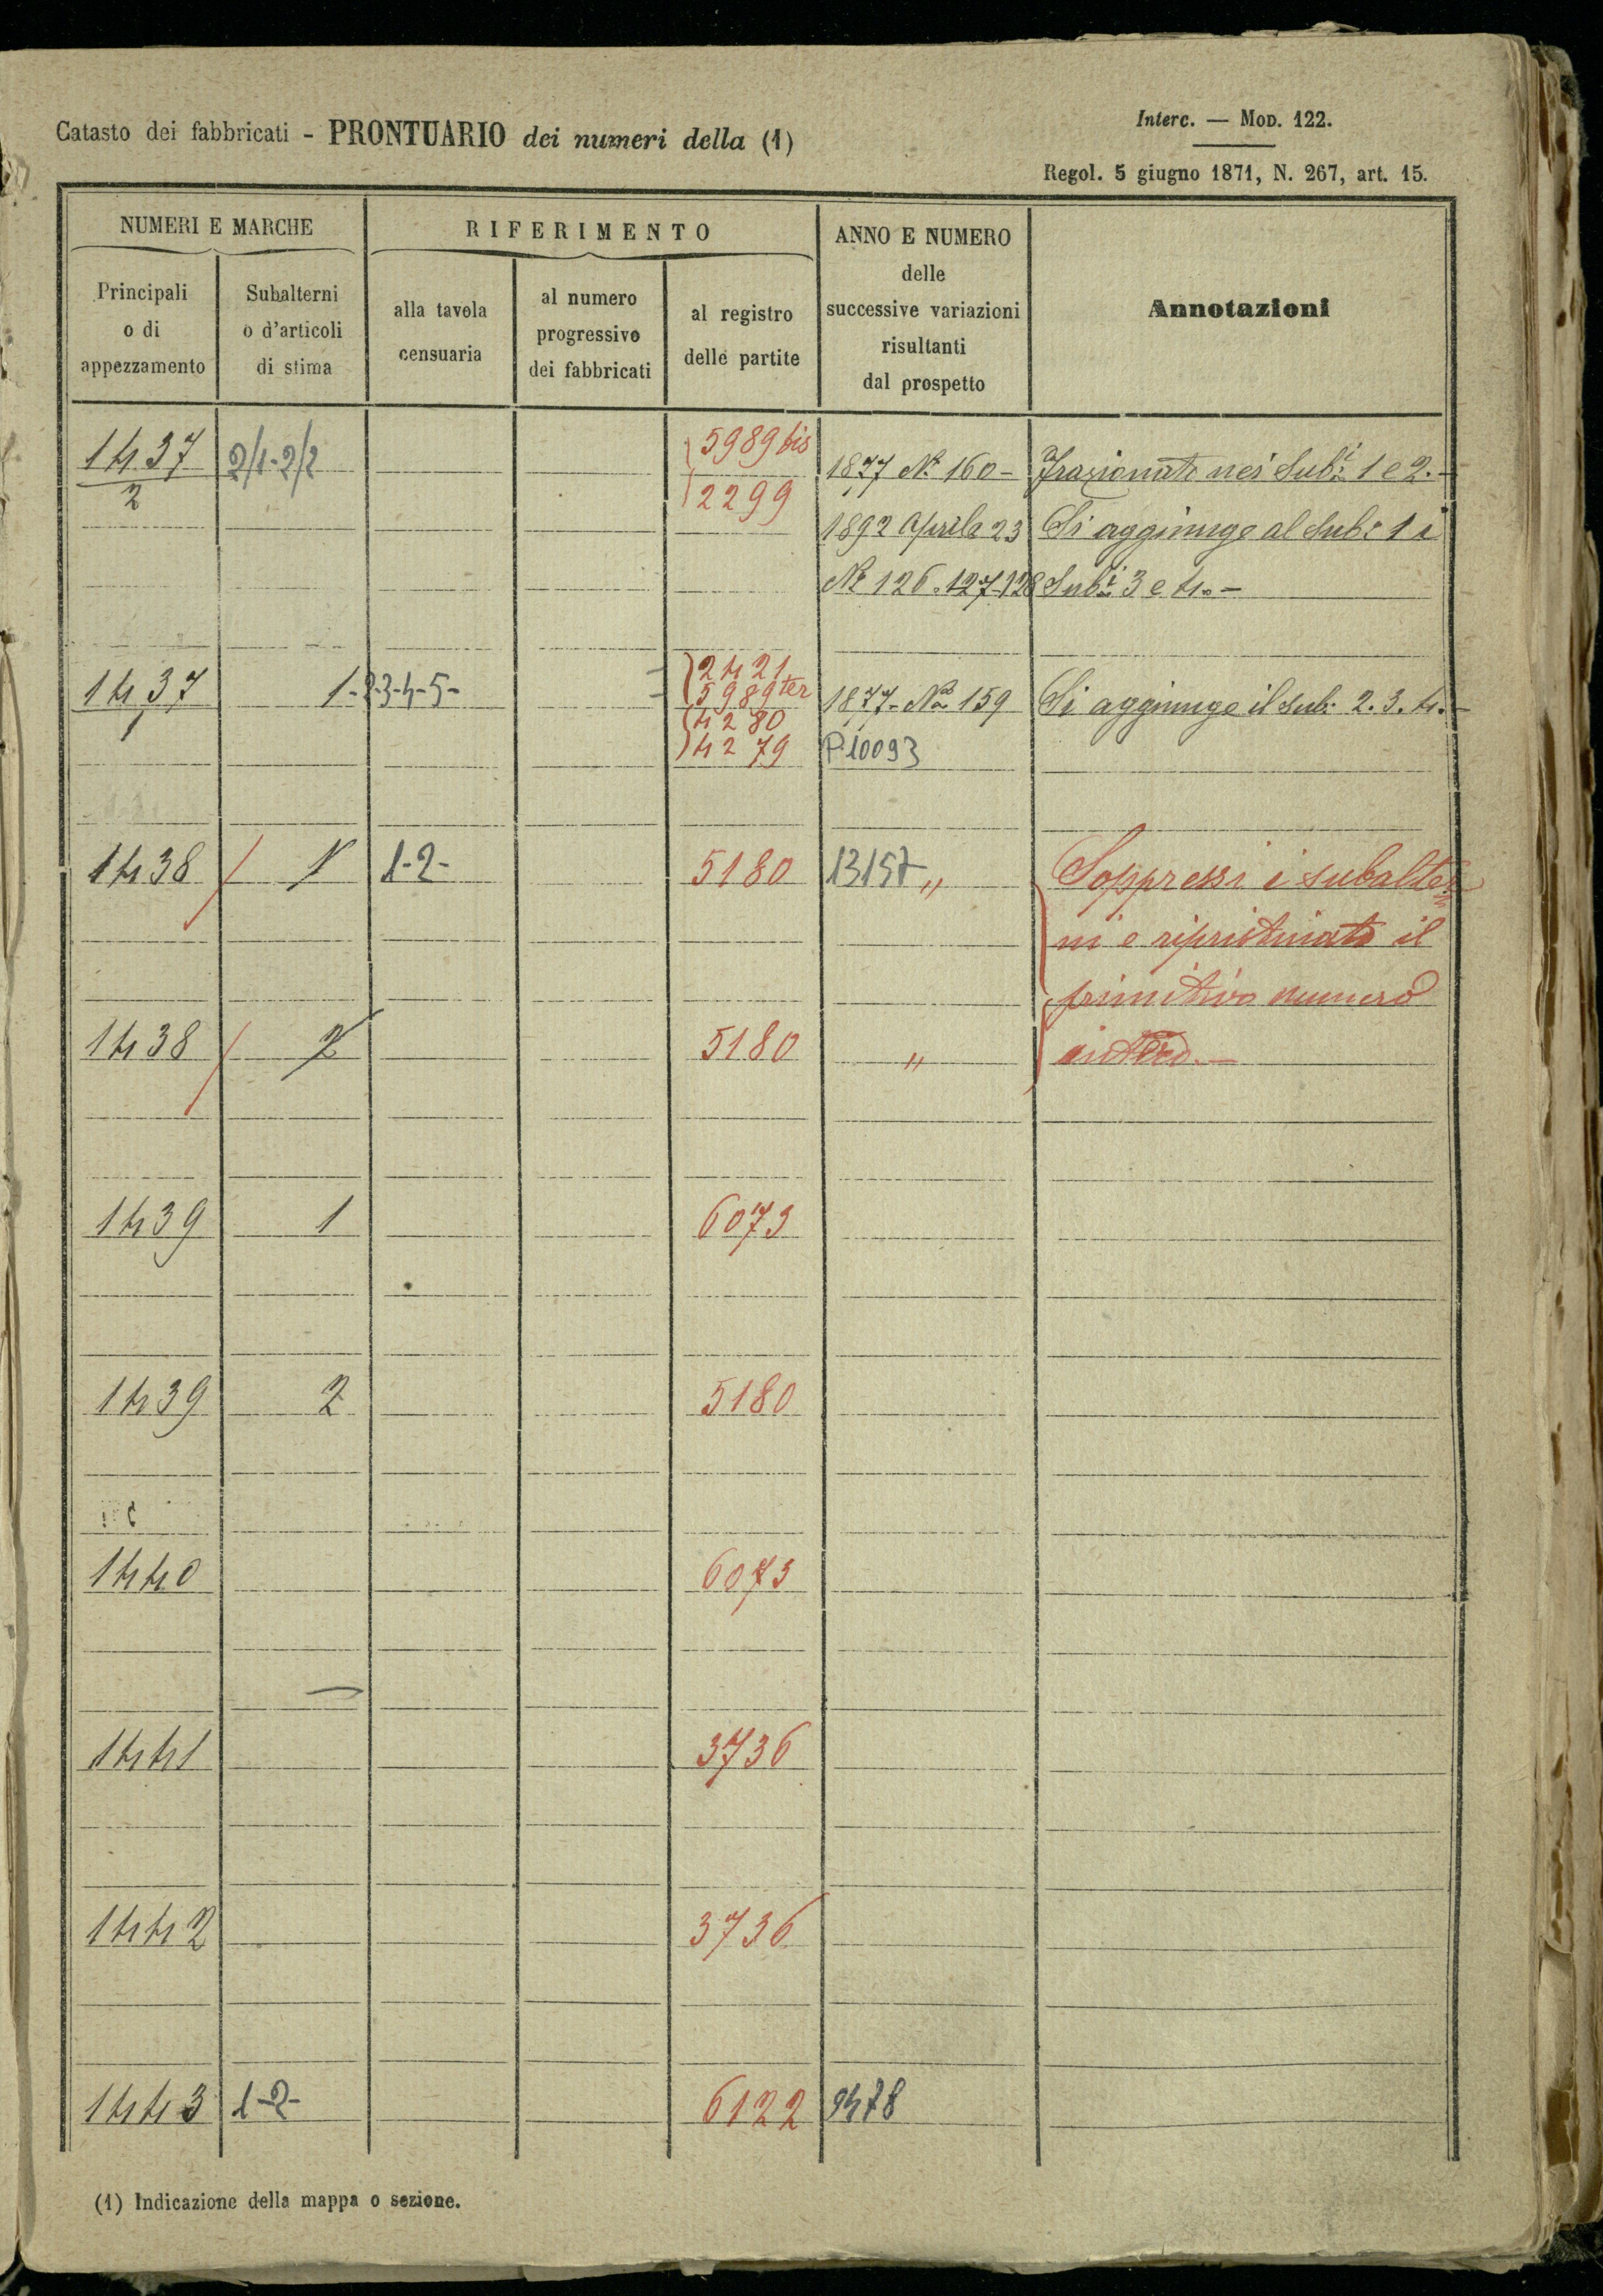 Catasto dei fabbricati - PRONTUARIO dei numeri della (1)
Interc. — Mod. 122.
Regol. 5 giugno 1871, N. 267, art. 15.
NUMERI E MARCHE
RIFERIMENTO
ANNO E NUMERO
delle
successive variazioni
risultanti
dal prospetto
Annotazioni
Principali
o di
appezzamento
Subalterni
o d'articoli
di stima
alla tavola
censuaria
al numero
progressivo
dei fabbricati
al registro
delle partite
5989 bis
1437/2 2/1-2/2 1877 No 160- Frazionato nei Subi 1 e 2.-
2299
1892 Aprile 23 Si aggiunge al Sub: 1 i
No 126.127-128 Subi 3 e 4.-
2421
1437/1 1-2-3-4-5- 5989 ter 1877- No 159 Si aggiunge il Sub: 2.3.4.-
4280
4279 P.10093
1438 1 1-2- 5180 13157 „ Soppressi i subalter=
ni e ripristinato il
primitivo numero
1438 2 5180 „ intero.-
1439 1 6073
1439 2 5180
1440 6073
1441 3736
1442 3736
1443 1-2- 6122 9478
(1) Indicazione della mappa o sezione.